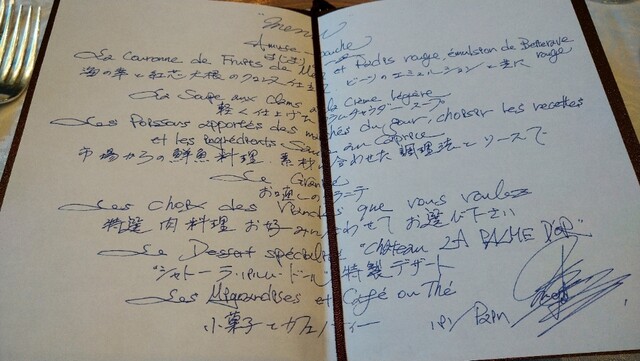 "Menu"
Amuse bouche
はじまり
La Couronne de Fruits de Mer et Radis rouge, émulsion de Betterave rouge
海の幸と紅芯大根のクロンヌ仕立 ビーツのエミュルションと共に
La Soupe aux Clams à la Crème légère
軽く仕上げた クラムチャウダースープ
Les Poissons apportés des marchés du jour, choisir les recettes
et les ingrédients, Sauce au Caprice
市場からの鮮魚料理、素材に合わせた調理法とソースで
Le Granité
お口直しのグラニテ
Les Choix des Viandes que vous voulez
特選肉料理 お好みにあわせてお選び下さい
Le Dessert spécialité "Château LA PALME D'OR"
"シャトーラ・パルム・ドール" 特製デザート
Les Mignardises et Café ou Thé
小菓子とカフェ・ティー
パン Pain